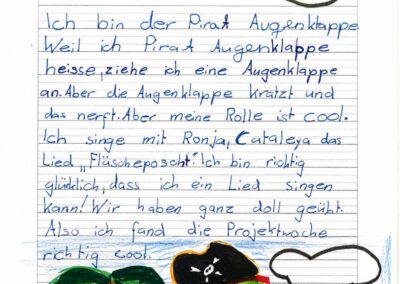 Ich bin der Pirat Augenklappe
Weil ich Pirat Augenklappe
heisse,ziehe ich eine Augenklappe
an.Aber die Augenklappe kratzt und
das nerft.Aber meine Rolle ist cool.
Ich singe mit Ronja, Cataleya das
Lied „Fläscheposcht". Ich bin richtig
glücklich, dass ich ein Lied singen
kann! Wir haben ganz doll geübt.
Also ich fand die Projektwoche
richtig cool.